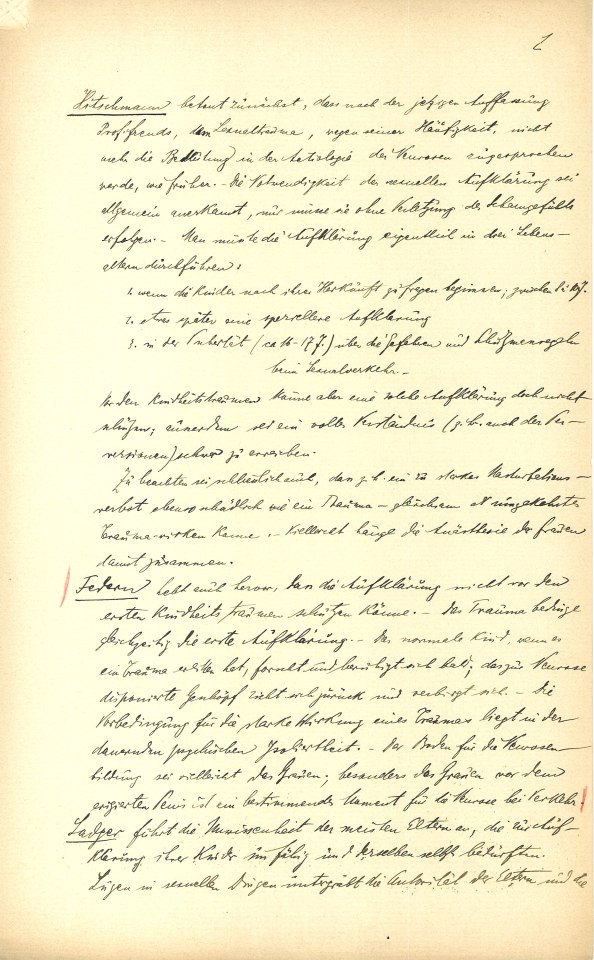 1
Hitschmann betont zunächst, dass nach der jetzigen Auffassung
Prof. Freuds, dem Sexualtrauma, wegen seiner Häufigkeit, nicht
mehr die Bedeutung in der Aetiologie der Neurosen zugesprochen
werde, wie früher. – Die Notwendigkeit der sexuellen Aufklärung sei
allgemein anerkannt, nur müsse sie ohne Verletzung des Schamgefühls
erfolgen. – Man müsste die Aufklärung eigentlich in drei Lebens–
altern durchführen:
1. wenn die Kinder nach ihrer Herkunft zu fragen beginnen; zwischen
2. etwas später eine speziellere Aufklärung
3. in der Pubertät (ca 16–17 J.) über die Gefahren und Schutzmassregeln
beim Sexualverkehr. –
Vor den Kindheitstraumen könne aber eine solche Aufklärung doch nicht
schützen; ausserdem sei ein volles Verständnis (z.b. auch der Per–
versionen) schwer zu erreichen.
Zu beachten sei schliesslich auch, dass z.b. ein zu starkes Masturbations–
verbot ebenso schädlich wie ein Trauma – gleichsam als umgekehrtes
Trauma – wirken könne. – Vielleicht hänge die Anästhesie der Frauen
damit zusammen.
Federn hebt auch hervor, dass die Aufklärung nicht vor den
ersten Kindheitstraumen schützen könne. – Das Trauma bedinge
gleichzeitig die erste Aufklärung. – Das normale Kind, wenn es
ein Trauma erlitten hat, forscht und beruhigt sich bald; das zur Neurose
disponierte Geschöpf zieht sich zurück und verbirgt sich. – Die
Vorbedingung für die starke Wirkung eines Traumas liegt in der
dauernden psychischen Isoliertheit. – Der Boden für die Neurosen–
bildung sei vielleicht das Grauen; besonders das Grauen vor dem
erigierten Penis ist ein bestimmendes Moment für die Neurose bei Verkehr.
Sadger führt die Unwissenheit der meisten Eltern an, die zur Auf–
klärung ihrer Kinder unfähig und derselben selbst bedürften.
Lügen in sexuellen Dingen untergräbt die Autorität der Eltern und die